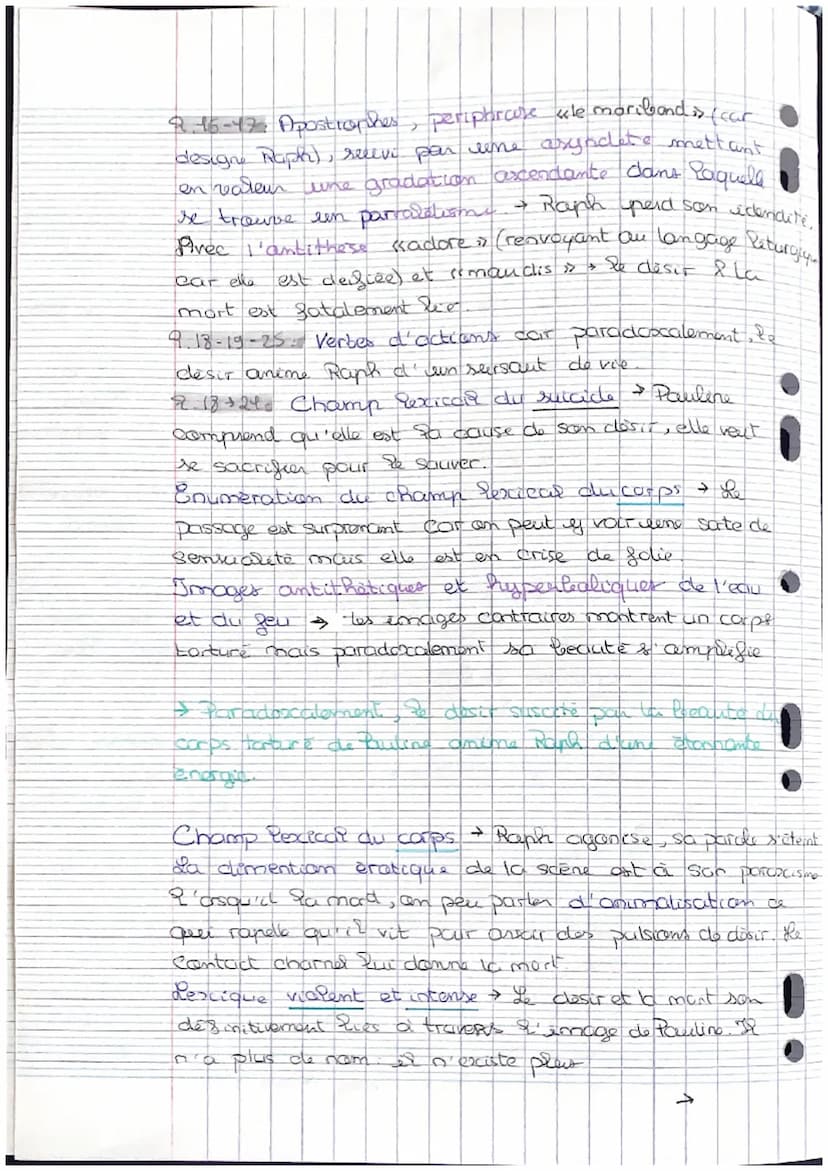 l.15-17: Apostrophes, periphrase « le moribond » (car
designe Raph), suivi par une asyndete mettant
en valeur une gradation ascendante dans laquelle
se trouve un parralelisme. → Raph perd son idendité.
Avec l'antithese « adore » (renvoyant au langage liturgique
car elle est deifiée) et « maudis » → le désir & la
mort est fatalement lié.
l.18-19-25: Verbes d'actions car paradoxalement, le
desir anime Raph d'un sursaut de vie.
l.18→24: Champ lexical du suicide → Pauline
comprend qu'elle est la cause de son désir, elle veut
se sacrifier pour le sauver.
Enumération du champ lexical du corps → Le
passage est surprenant car on peut y voir une sorte de
sensualité mais elle est en crise de folie.
Images antithétiques et hyperboliques de l'eau
et du feu → les images contraires montrent un corps
torturé mais paradoxalement sa beauté s'amplifie
→ Paradoxalement, le désir suscité par la beauté du
corps torturé de Pauline anime Raph d'une étonnante
énergie.
Champ lexical du corps → Raph agonise, sa parole s'éteint
La dimention érotique de la scène est à son paroxisme
l'orsqu'il la mord, on peu parler d'animalisation ce
qui rapelle qu'il vit pour avoir des pulsions de désir. Le
contact charnel lui donne la mort.
Lexique violent et intense → Le desir et la mort son
définitivement liés à travers l'image de Pauline. Il
n'a plus de nom. il n'existe plus
→